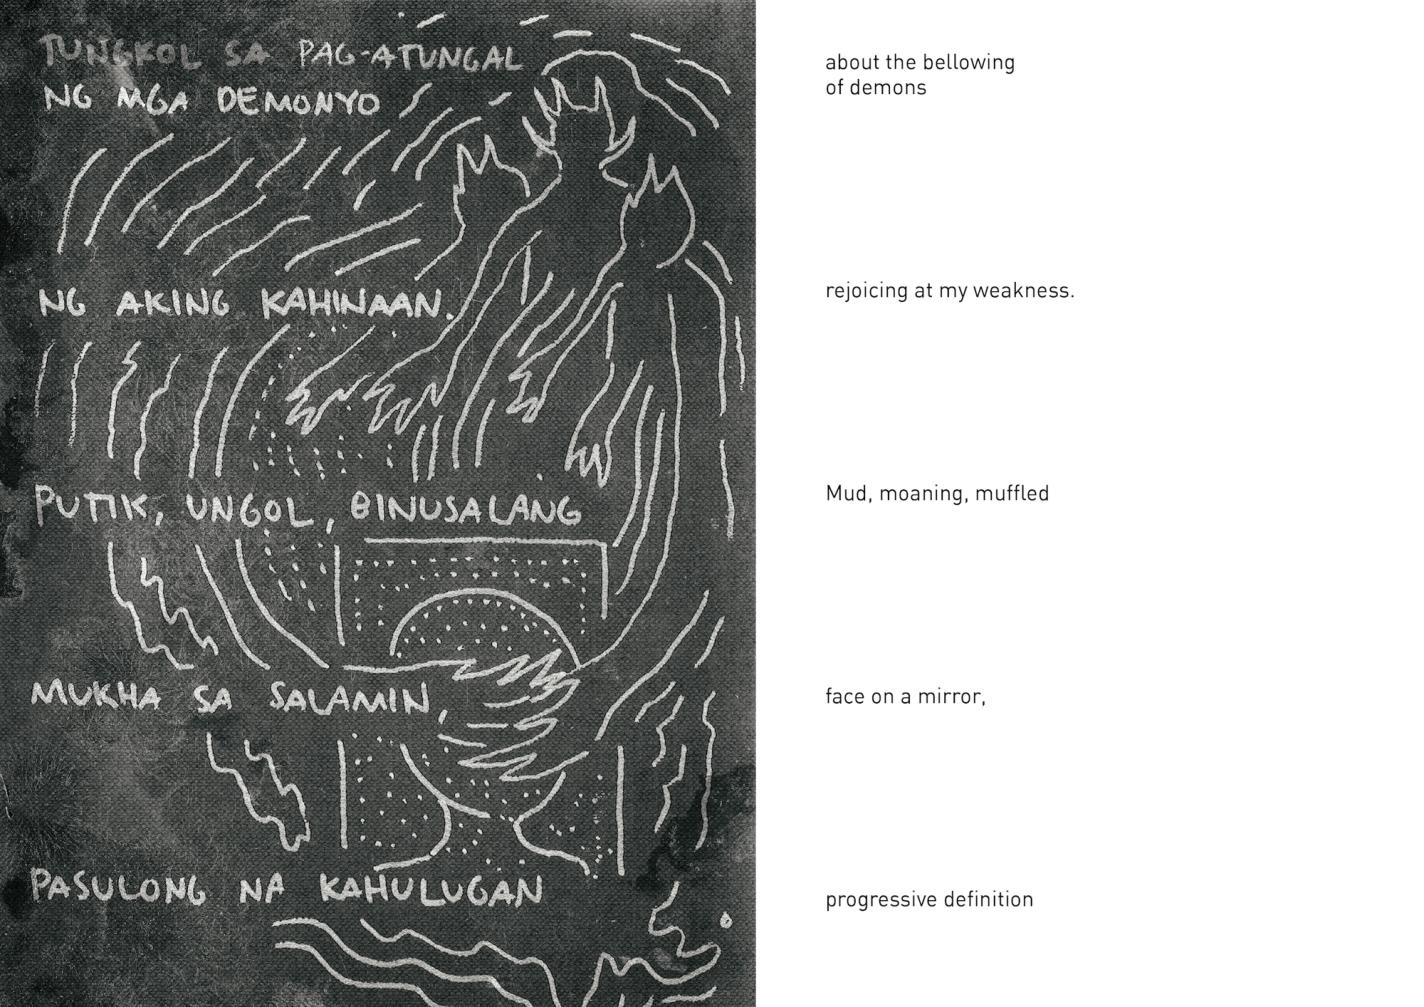 TUNGKOL SA PAG-ATUNGAL
NG MGA DEMONYO
NG AKING KAHINAAN.
PUTIK, UNGOL, BINUSALANG
MUKHA SA SALAMIN,
PASULONG NA KAHULUGAN
about the bellowing
of demons
rejoicing at my weakness.
Mud, moaning, muffled
face on a mirror,
progressive definition